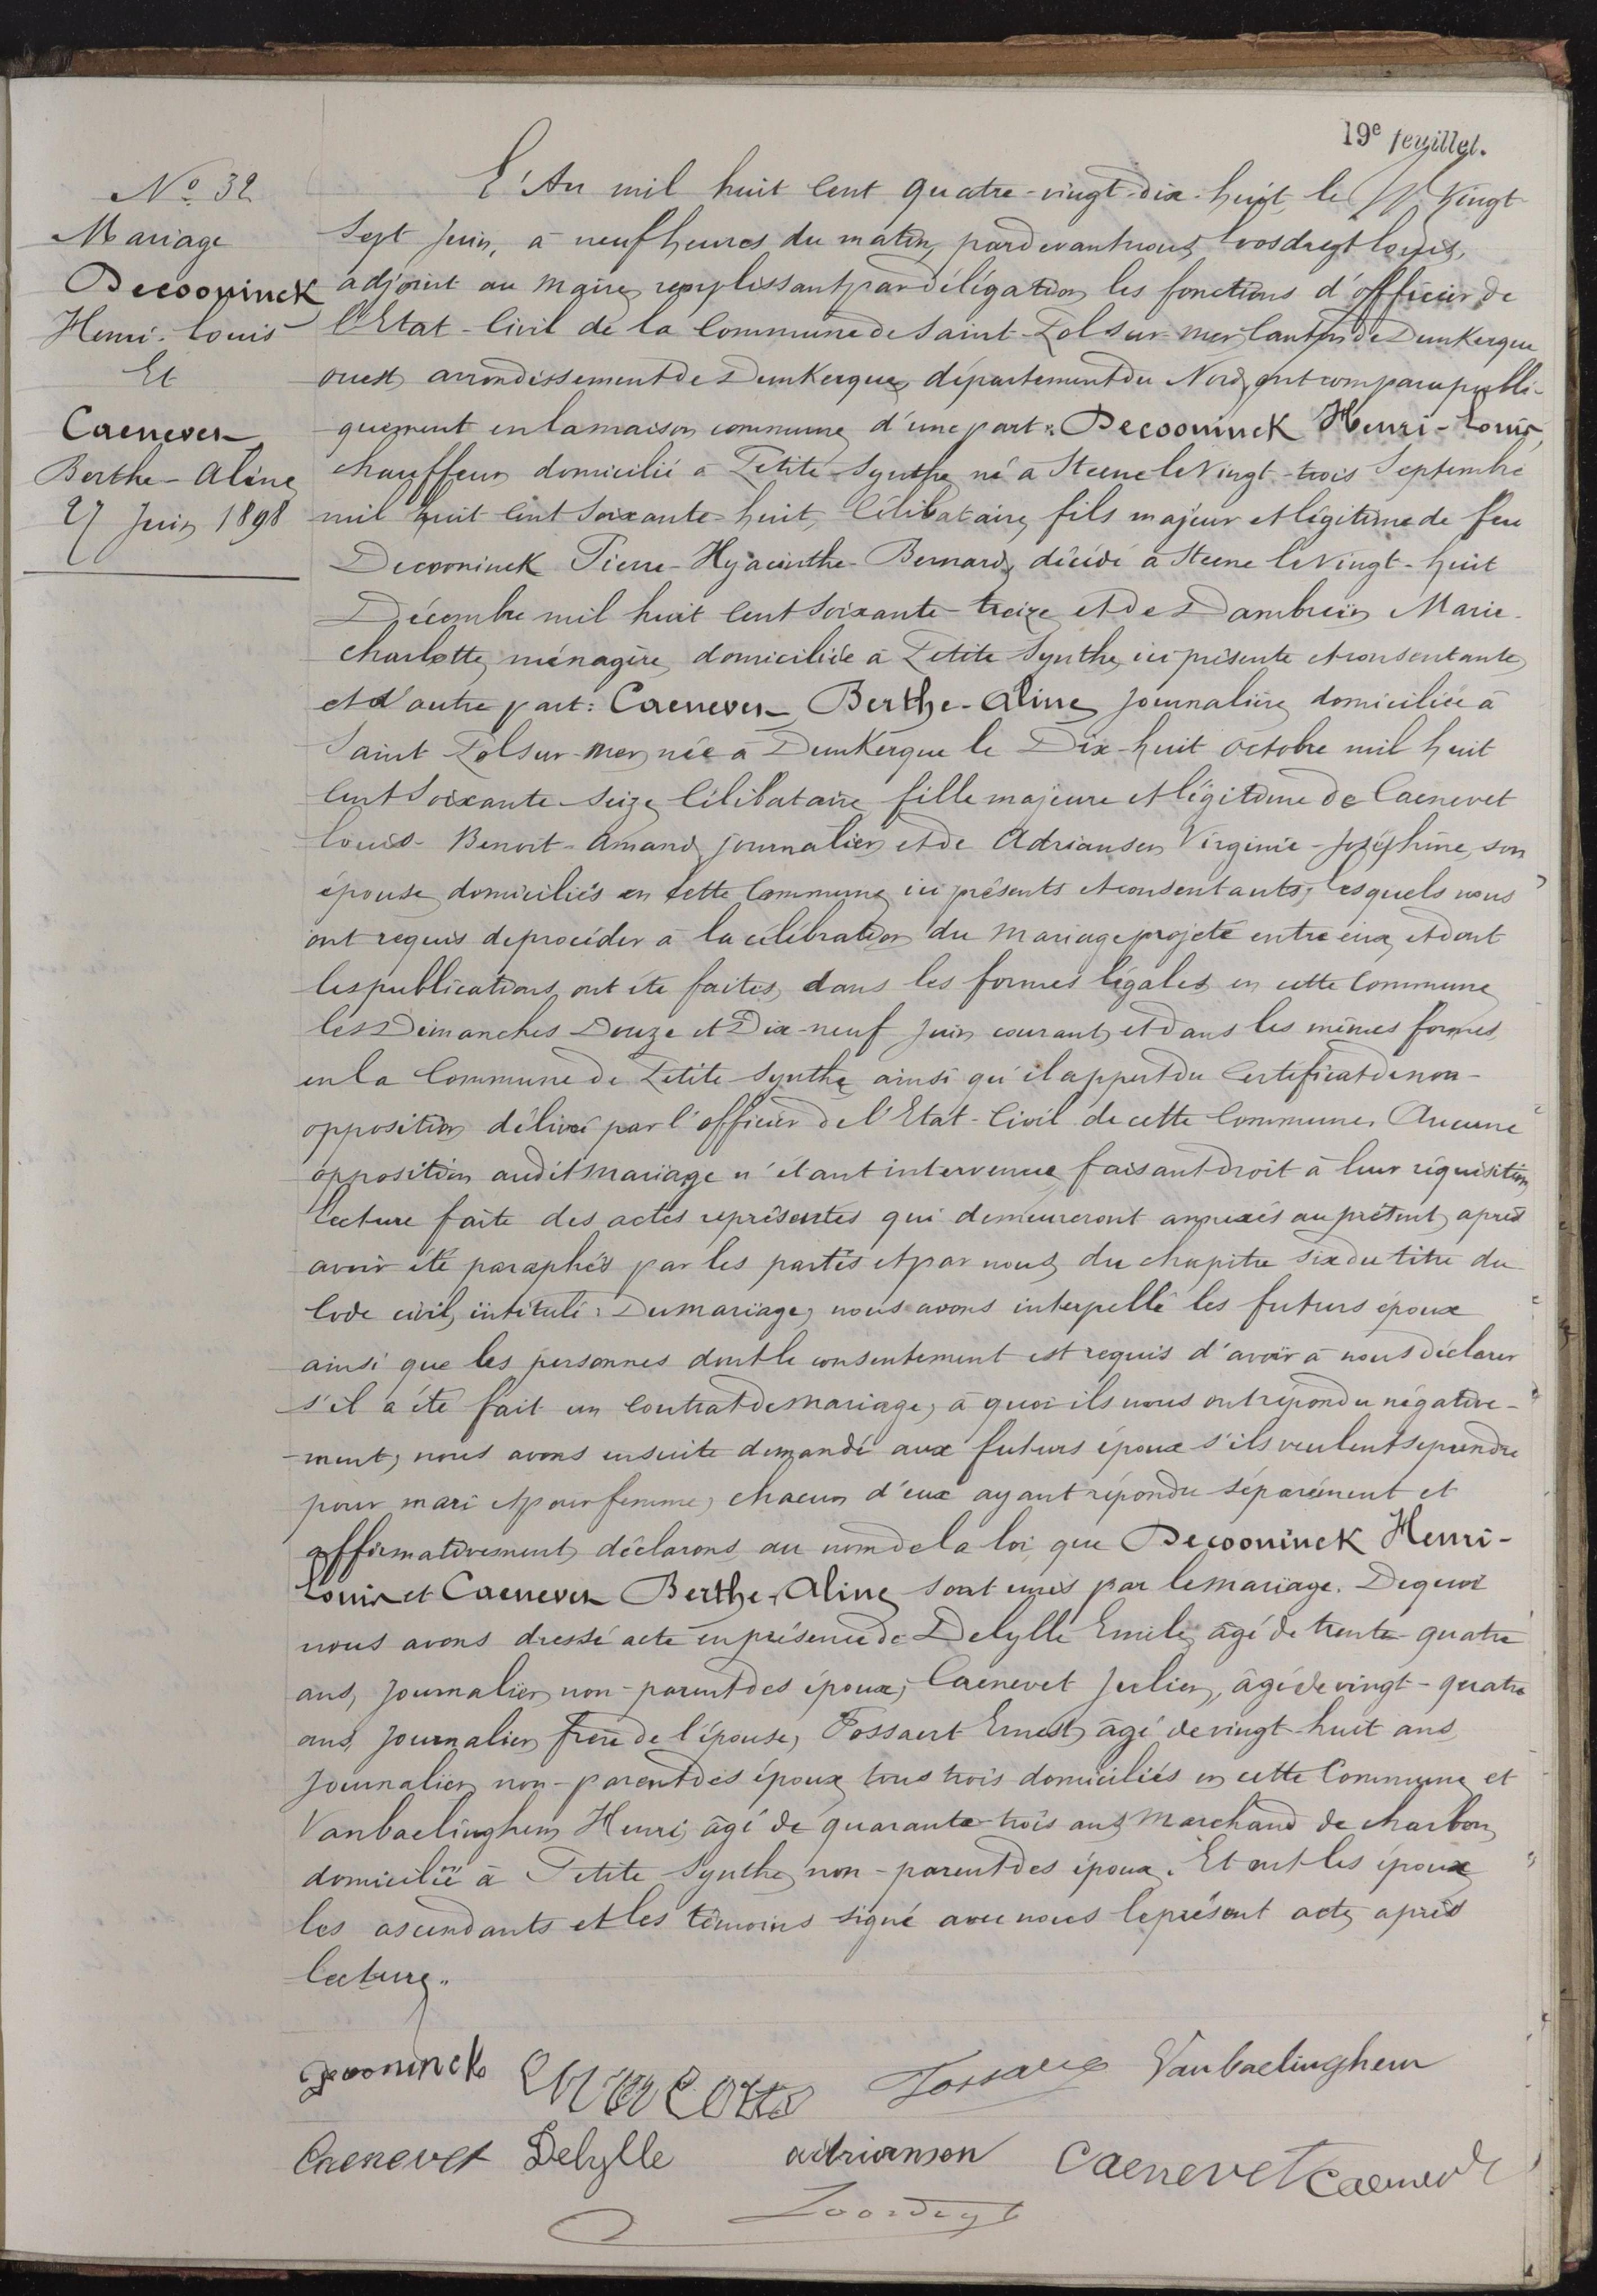 19e feuillet.
No 32
Mariage
Decooninck
Henri-Louis
Et
Caenevet
Berthe-Aline
27 Juin 1898
L'An mil huit cent quatre-vingt-dix-huit, le Vingt
Sept Juin, à neuf heures du matin, pardevant nous Loosdregt Louis,
adjoint au Maire, remplissant par délégation les fonctions d'officier de
l'Etat-Civil de la Commune de Saint-Pol sur-mer, Canton de Dunkerque
ouest, arrondissement de Dunkerque, département du Nord, ont comparu publi-
quement en la maison commune, d'une part: Decooninck Henri-Louis,
chauffeur, domicilié à Petite-Synthe, né à Steene le Vingt-trois Septembre
mil huit cent soixante-huit, Célibataire, fils majeur et légitime de feu
Decooninck Pierre-Hyacinthe-Bernard, décédé à Steene le Vingt-huit
Décembre mil huit cent soixante-treize, et de Dambrein Marie-
Charlotte, ménagère, domiciliée à Petite Synthe, ici présente et consentante,
et d'autre part: Caenevet Berthe-Aline, journalière, domiciliée à
Saint-Pol sur-mer, née à Dunkerque le Dix-huit Octobre mil huit
cent soixante-seize, Célibataire, fille majeure et légitime de Caenevet
Louis-Benoit-Amand, journalier, et de Adriansen Virginie-Joséphine, son
épouse, domiciliés en cette Commune, ici présents et consentants, lesquels nous
ont requis de procéder à la célébration du mariage projeté entre eux, et dont
les publications ont été faites, dans les formes légales en cette Commune
les Dimanches Douze et Dix-neuf Juin courant, et dans les mêmes formes,
en la Commune de Petite-Synthe ainsi qu'il appert du Certificat de non-
opposition délivré par l'officier de l'Etat-Civil de cette Commune. Aucune
opposition audit mariage n'étant intervenue, faisant droit à leur réquisition,
lecture faite des actes représentés qui demeureront annexés au présent, après
avoir été paraphés par les parties et par nous, du chapitre six du titre du
Code civil, intitulé: Du mariage, nous avons interpellé les futurs époux
ainsi que les personnes dont le consentement est requis d'avoir à nous déclarer
s'il a été fait un contrat de mariage, à quoi ils nous ont répondu négative-
-ment, nous avons ensuite demandé aux futurs époux s'ils veulent se prendre
pour mari et pour femme, chacun d'eux ayant répondu séparément et
affirmativement, déclarons au nom de la loi, que Decooninck Henri-
Louis et Caenevet Berthe-Aline sont unis par le mariage. De quoi
nous avons dressé acte en présence de Delylle Emile, âgé de trente-quatre
ans, journalier, non-parent des époux, Caenevet Julien, âgé de vingt-quatre
ans, journalier, frère de l'épouse, Fossaert Ernest, âgé de vingt-huit ans,
journalier, non-parent des époux, tous trois domiciliés en cette Commune, et
Vanbaelinghem Henri, âgé de quarante-trois ans, marchand de charbon,
domicilié à Petite Synthe, non-parent des époux. Et ont les époux
les ascendants et les témoins signé avec nous le présent acte, après
lecture.
Decooninck Vanbaelinghem
Caenevet Delylle adrianson Caenevet Caenevet